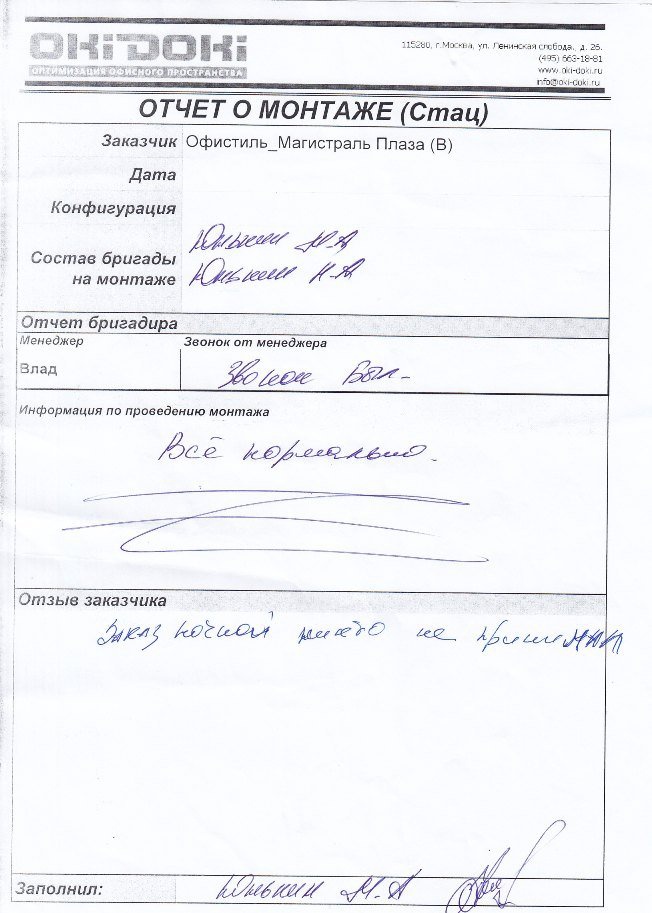 OKIDOKI
ОПТИМИЗАЦИЯ ОФИСНОГО ПРОСТРАНСТВА
115280, г.Москва, ул. Ленинская слобода., д. 26.
(495) 663-18-81
www. oki-doki.ru
info@oki-doki.ru
ОТЧЕТ О МОНТАЖЕ (Стац)
Заказчик Офистиль_Магистраль Плаза (В)
Дата
Конфигурация
Состав бригады на монтаже
Юнькин М.А
Юнькин Н.А
Отчет бригадира
Менеджер Звонок от менеджера
Влад Звонок Был-
Информация по проведению монтажа
Всё нормально.
Отзыв заказчика
Заказ ночной никто не принимал
Заполнил: Юнькин М.А